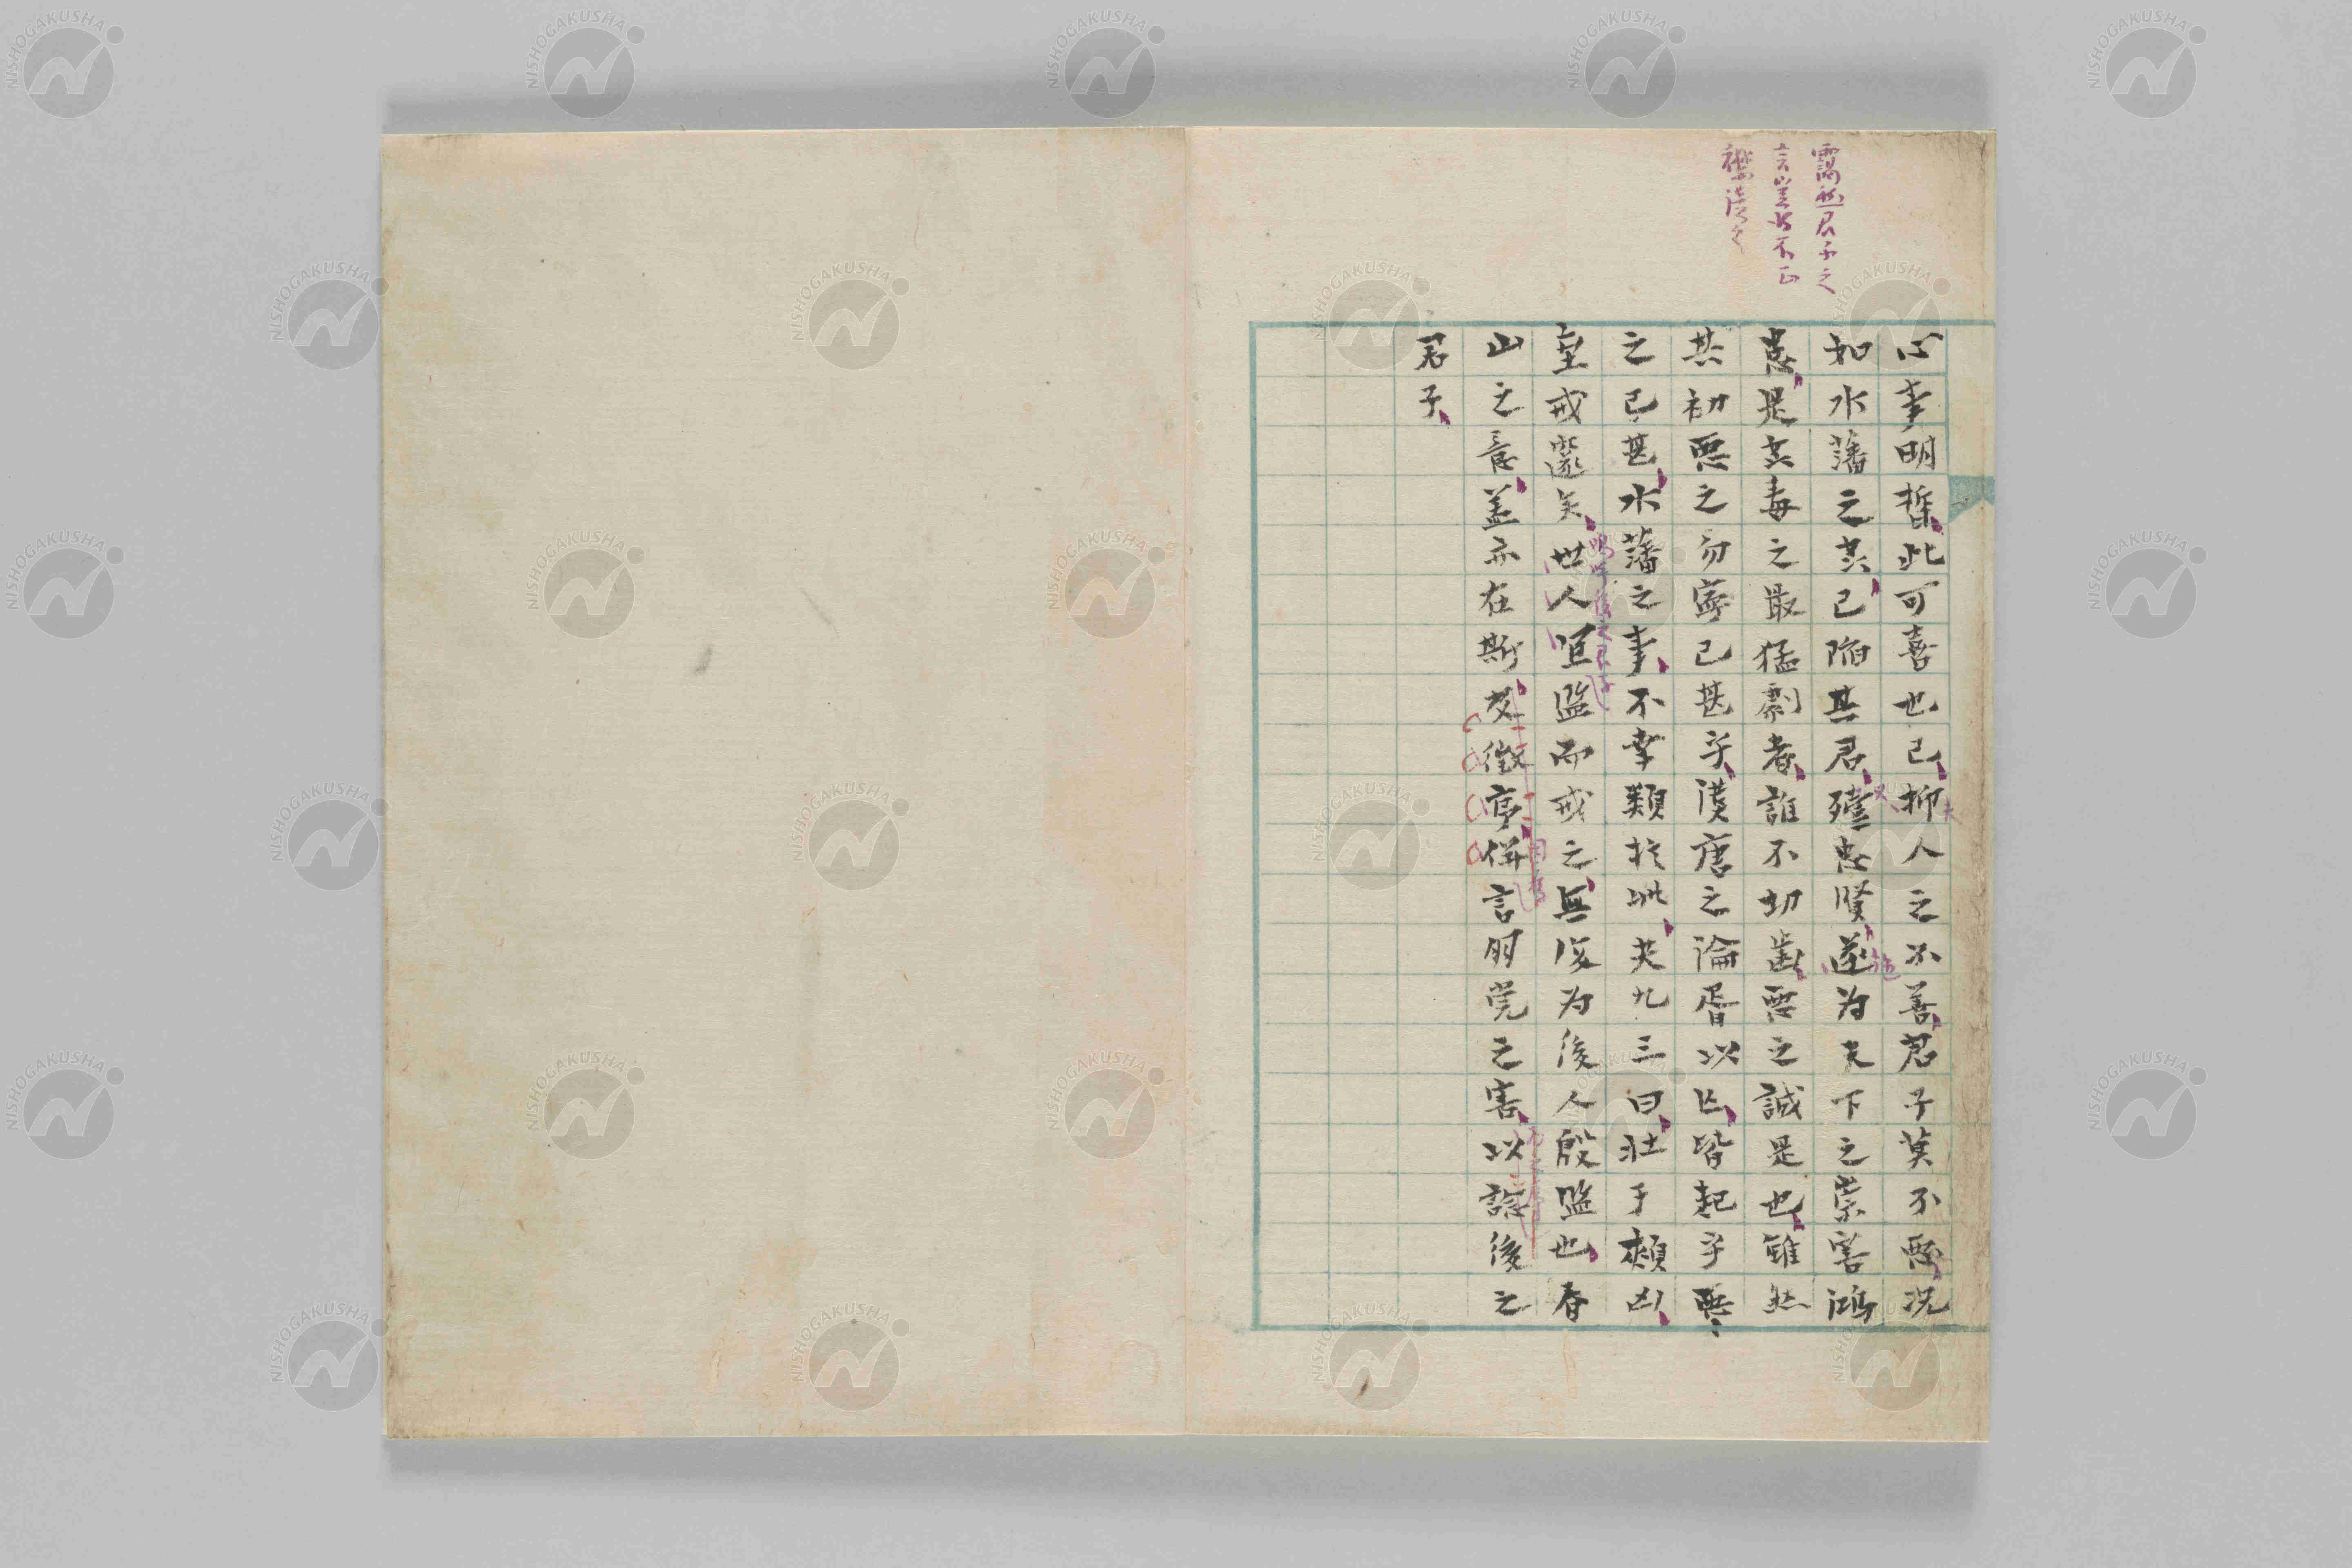 藹然君子之
言豈如不正
心事明哲此可喜也已抑人之不善君子莫不惡況
如水藩之其已陷其君殪忠賢遂为天下之蠹害鴻
慝是其毒之最猛劇者誰不切齒惡之誠是也雖然
其初惡之勿寧已甚乎漢唐之論胥以亡皆起乎惡
之已甚水藩之事不幸類於此夬九三曰壯于頄凶
至戒邃矣世人宜監而戒之無復为後人殷監也春
山之意蓋亦在斯友徵序併言朋党之害以諗後之
君子
嗚呼後之君子